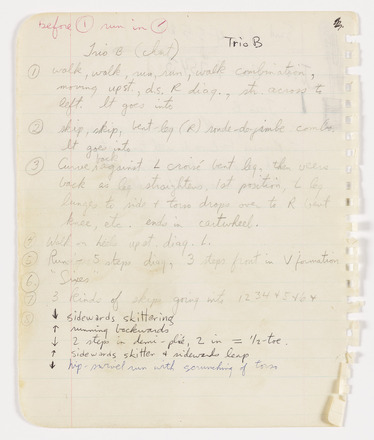 before ① run in ✓
Trio B (chat)
Trio B
① walk, walk, run, run, walk combination,
moving upst, d.s. R diag., str. across to
left. It goes into
② skip, skip, bent-leg (R) ronde-de-jambe combo.
It goes into
back
③ Curve against L croisé bent leg. then curve
back as leg straightens, 1st position, L leg
lunges to side & torso drops over to R bent
knee, etc. ends in cartwheel.
④ Walk on heels upst. diag. L.
⑤ Run - 5 steps diag, 3 steps front in V formation
⑥
⑦ 3 kinds of skips going into 1 2 3 4 & 5 & 6 &
⑧ ↓ sidewards skittering
↑ running backwards
↓ 2 steps in demi-plié, 2 in = 1/2-toe.
↑ sidewards skitter & sidewards leap
↓ hip-swivel run with scrunching of torso